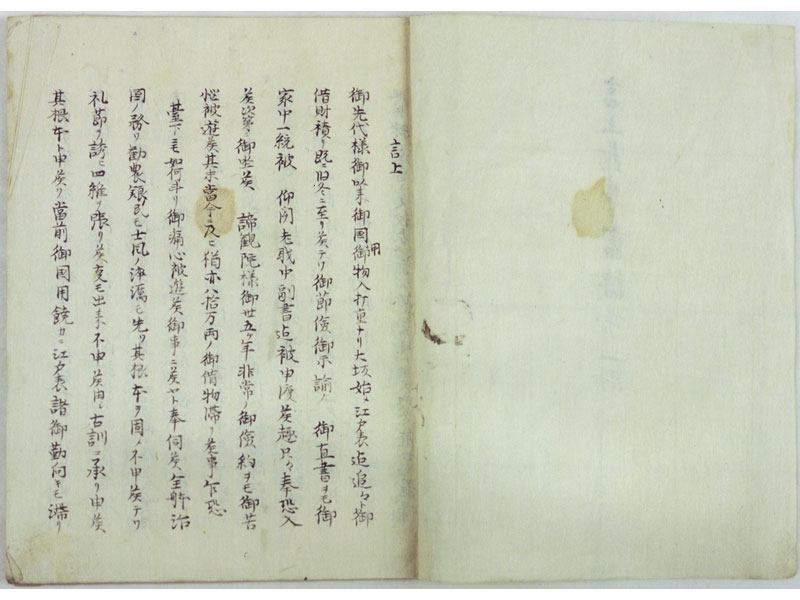 言上
御先代様御以来御国御用物入打重ナリ大坂始メ江戸表迄追々ト御
借財積リ既ニ旧冬ニ至リ候テハ御節倹御示諭ノ 御直書ヲモ御
家中一統被 仰聞老職中副書迄被申渡候趣只々奉恐入
候次第ニ御坐候 諦観院様御世五ヶ年非常ノ御倹約ヲモ御苦
悩被遊候其末当今ニ及ビ猶亦八拾万両ノ御借物滞リ候事乍恐
臺下ニモ如何斗リ御痛心被遊候御事ニ候ヤト奉伺候全体治
国ノ務ハ勧農 民モ士風ノ 先ツ其根本ヲ固メ不申候テハ
礼節ヲ 四維ヲ張リ候変モ出来不申候由ハ古訓ニ承リ申候
其根本ト申候ハ当前御国用饒カニ江戸表諸御勤向キモ滞リ